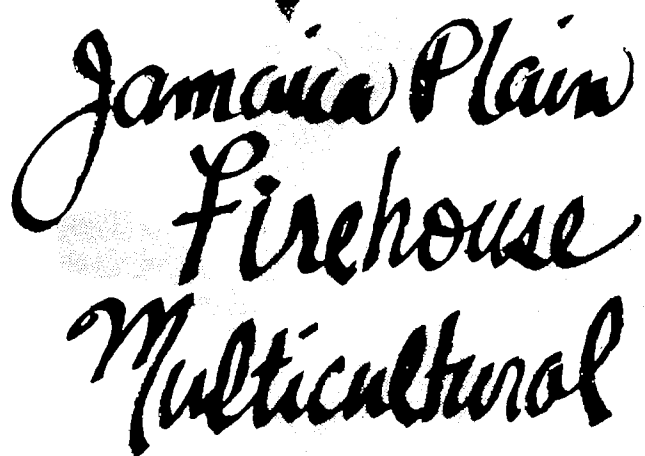 Jamaica Plain
Firehouse
Multicultural